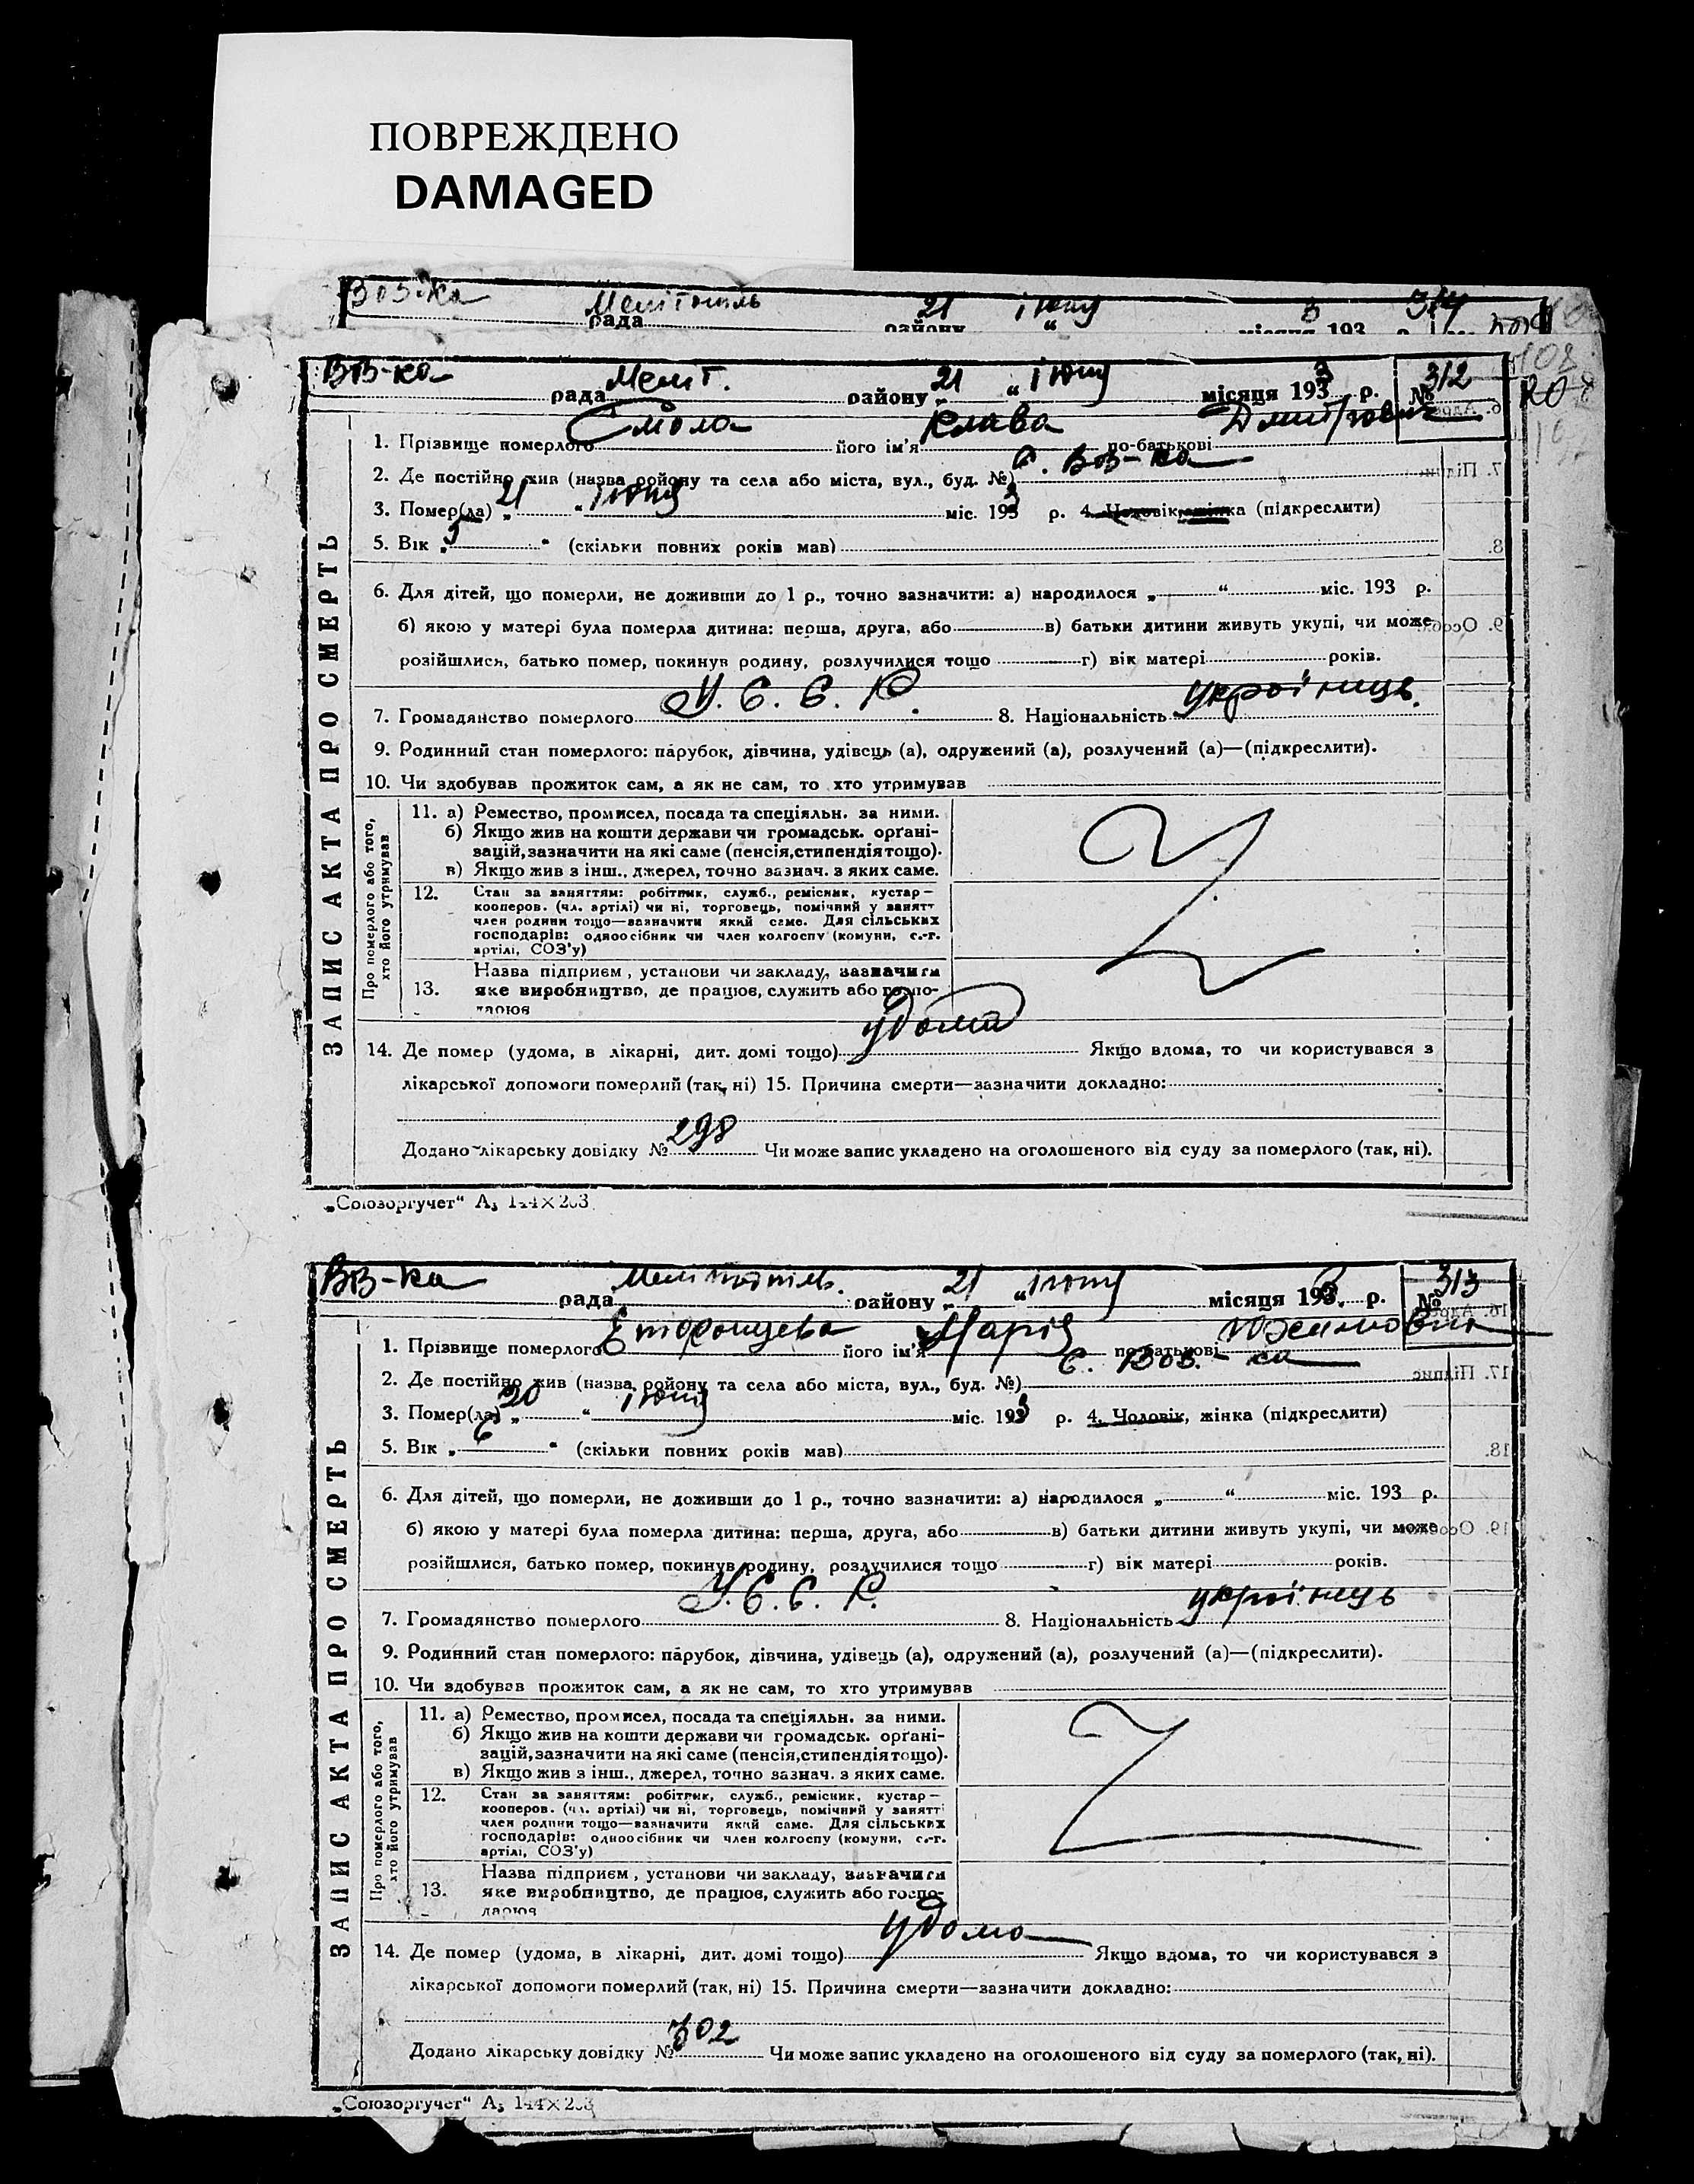 ПОВРЕЖДЕНО
DAMAGED
Мелітопіль 21 іюня 3
рада району “ місяця 193 р.
ВОВ-ка рада Меліт. району „21 “ іюня місяця 1933 р. № 312
1. Прізвище померлого Смола його ім’я Клава по-батькові
2. Де постійно жив (назва району та села або міста, вул., буд. №) С. Воз-ка
3. Помер(ла) „21 “ іюня міс. 1933 р. 4. Чоловік, жінка (підкреслити)
5. Вік „5 “ (скільки повних років мав)
6. Для дітей, що померли, не доживши до 1 р., точно зазначити: а) народилося „ “ міс. 193 р.
б) якою у матері була померла дитина: перша, друга, або в) батьки дитини живуть укупі, чи може
розійшлися, батько помер, покинув родину, розлучилися тощо г) вік матері років.
7. Громадянство померлого У. С. С. Р. 8. Національність украінець.
9. Родинний стан померлого: парубок, дівчина, удівець (а), одружений (а), розлучений (а)—(підкреслити).
10. Чи здобував прожиток сам, а як не сам, то хто утримував
ЗАПИС АКТА ПРО СМЕРТЬ
Про померлого або того,
хто його утримував
11. а) Ремество, промисел, посада та спеціяльн. за ними.
б) Якщо жив на кошти держави чи громадськ. орґані-
зацій, зазначити на які саме (пенсія, стипендія тощо).
в) Якщо жив з інш., джерел, точно зазнач. з яких саме.
12. Стан за заняттям: робітник, служб., ремісник, кустар—
кооперов. (чл. артілі) чи ні, торговець, помічний у занятт
член родини тощо—зазначити який саме. Для сільських
господарів: одноосібник чи член колгоспу (комуни, с.-г.
артілі, СОЗ’у)
13. Назва підприєм, установи чи закладу, зазначити
яке виробництво, де працює, служить або госпо-
дарює
14. Де помер (удома, в лікарні, дит. домі тощо) удома Якщо вдома, то чи користувався з
лікарської допомоги померлий (так, ні) 15. Причина смерти—зазначити докладно:
Додано лікарську довідку № 298 Чи може запис укладено на оголошеного від суду за померлого (так, ні).
„Союзоргучет“ А₅ 144×203
ВОВ-ка рада Мелітопіль. району „21 “ іюня місяця 1933. р. № 313
1. Прізвище померлого його ім’я Марія по-батькові
2. Де постійно жив (назва району та села або міста, вул., буд. №) С. Воз.-ка
3. Помер(ла) „20 “ іюня міс. 1933 р. 4. Чоловік, жінка (підкреслити)
5. Вік „6 “ (скільки повних років мав)
6. Для дітей, що померли, не доживши до 1 р., точно зазначити: а) народилося „ “ міс. 193 р.
б) якою у матері була померла дитина: перша, друга, або в) батьки дитини живуть укупі, чи може
розійшлися, батько помер, покинув родину, розлучилися тощо г) вік матері років.
7. Громадянство померлого У. С. С. Р. 8. Національність украінець
9. Родинний стан померлого: парубок, дівчина, удівець (а), одружений (а), розлучений (а)—(підкреслити).
10. Чи здобував прожиток сам, а як не сам, то хто утримував
ЗАПИС АКТА ПРО СМЕРТЬ
Про померлого або того,
хто його утримував
11. а) Ремество, промисел, посада та спеціяльн. за ними.
б) Якщо жив на кошти держави чи громадськ. орґані-
зацій, зазначити на які саме (пенсія, стипендія тощо).
в) Якщо жив з інш., джерел, точно зазнач. з яких саме.
12. Стан за заняттям: робітник, служб., ремісник, кустар—
кооперов. (чл. артілі) чи ні, торговець, помічний у занятті
член родини тощо—зазначити який саме. Для сільських
господарів: одноосібник чи член колгоспу (комуни, с.-г.
артілі, СОЗ’у)
13. Назва підприєм, установи чи закладу, зазначити
яке виробництво, де працює, служить або госпо-
дарює
14. Де помер (удома, в лікарні, дит. домі тощо) удома Якщо вдома, то чи користувався з
лікарської допомоги померлий (так, ні) 15. Причина смерти—зазначити докладно:
Додано лікарську довідку № 302 Чи може запис укладено на оголошеного від суду за померлого (так, ні).
„Союзоргучет“ А₅ 144×203